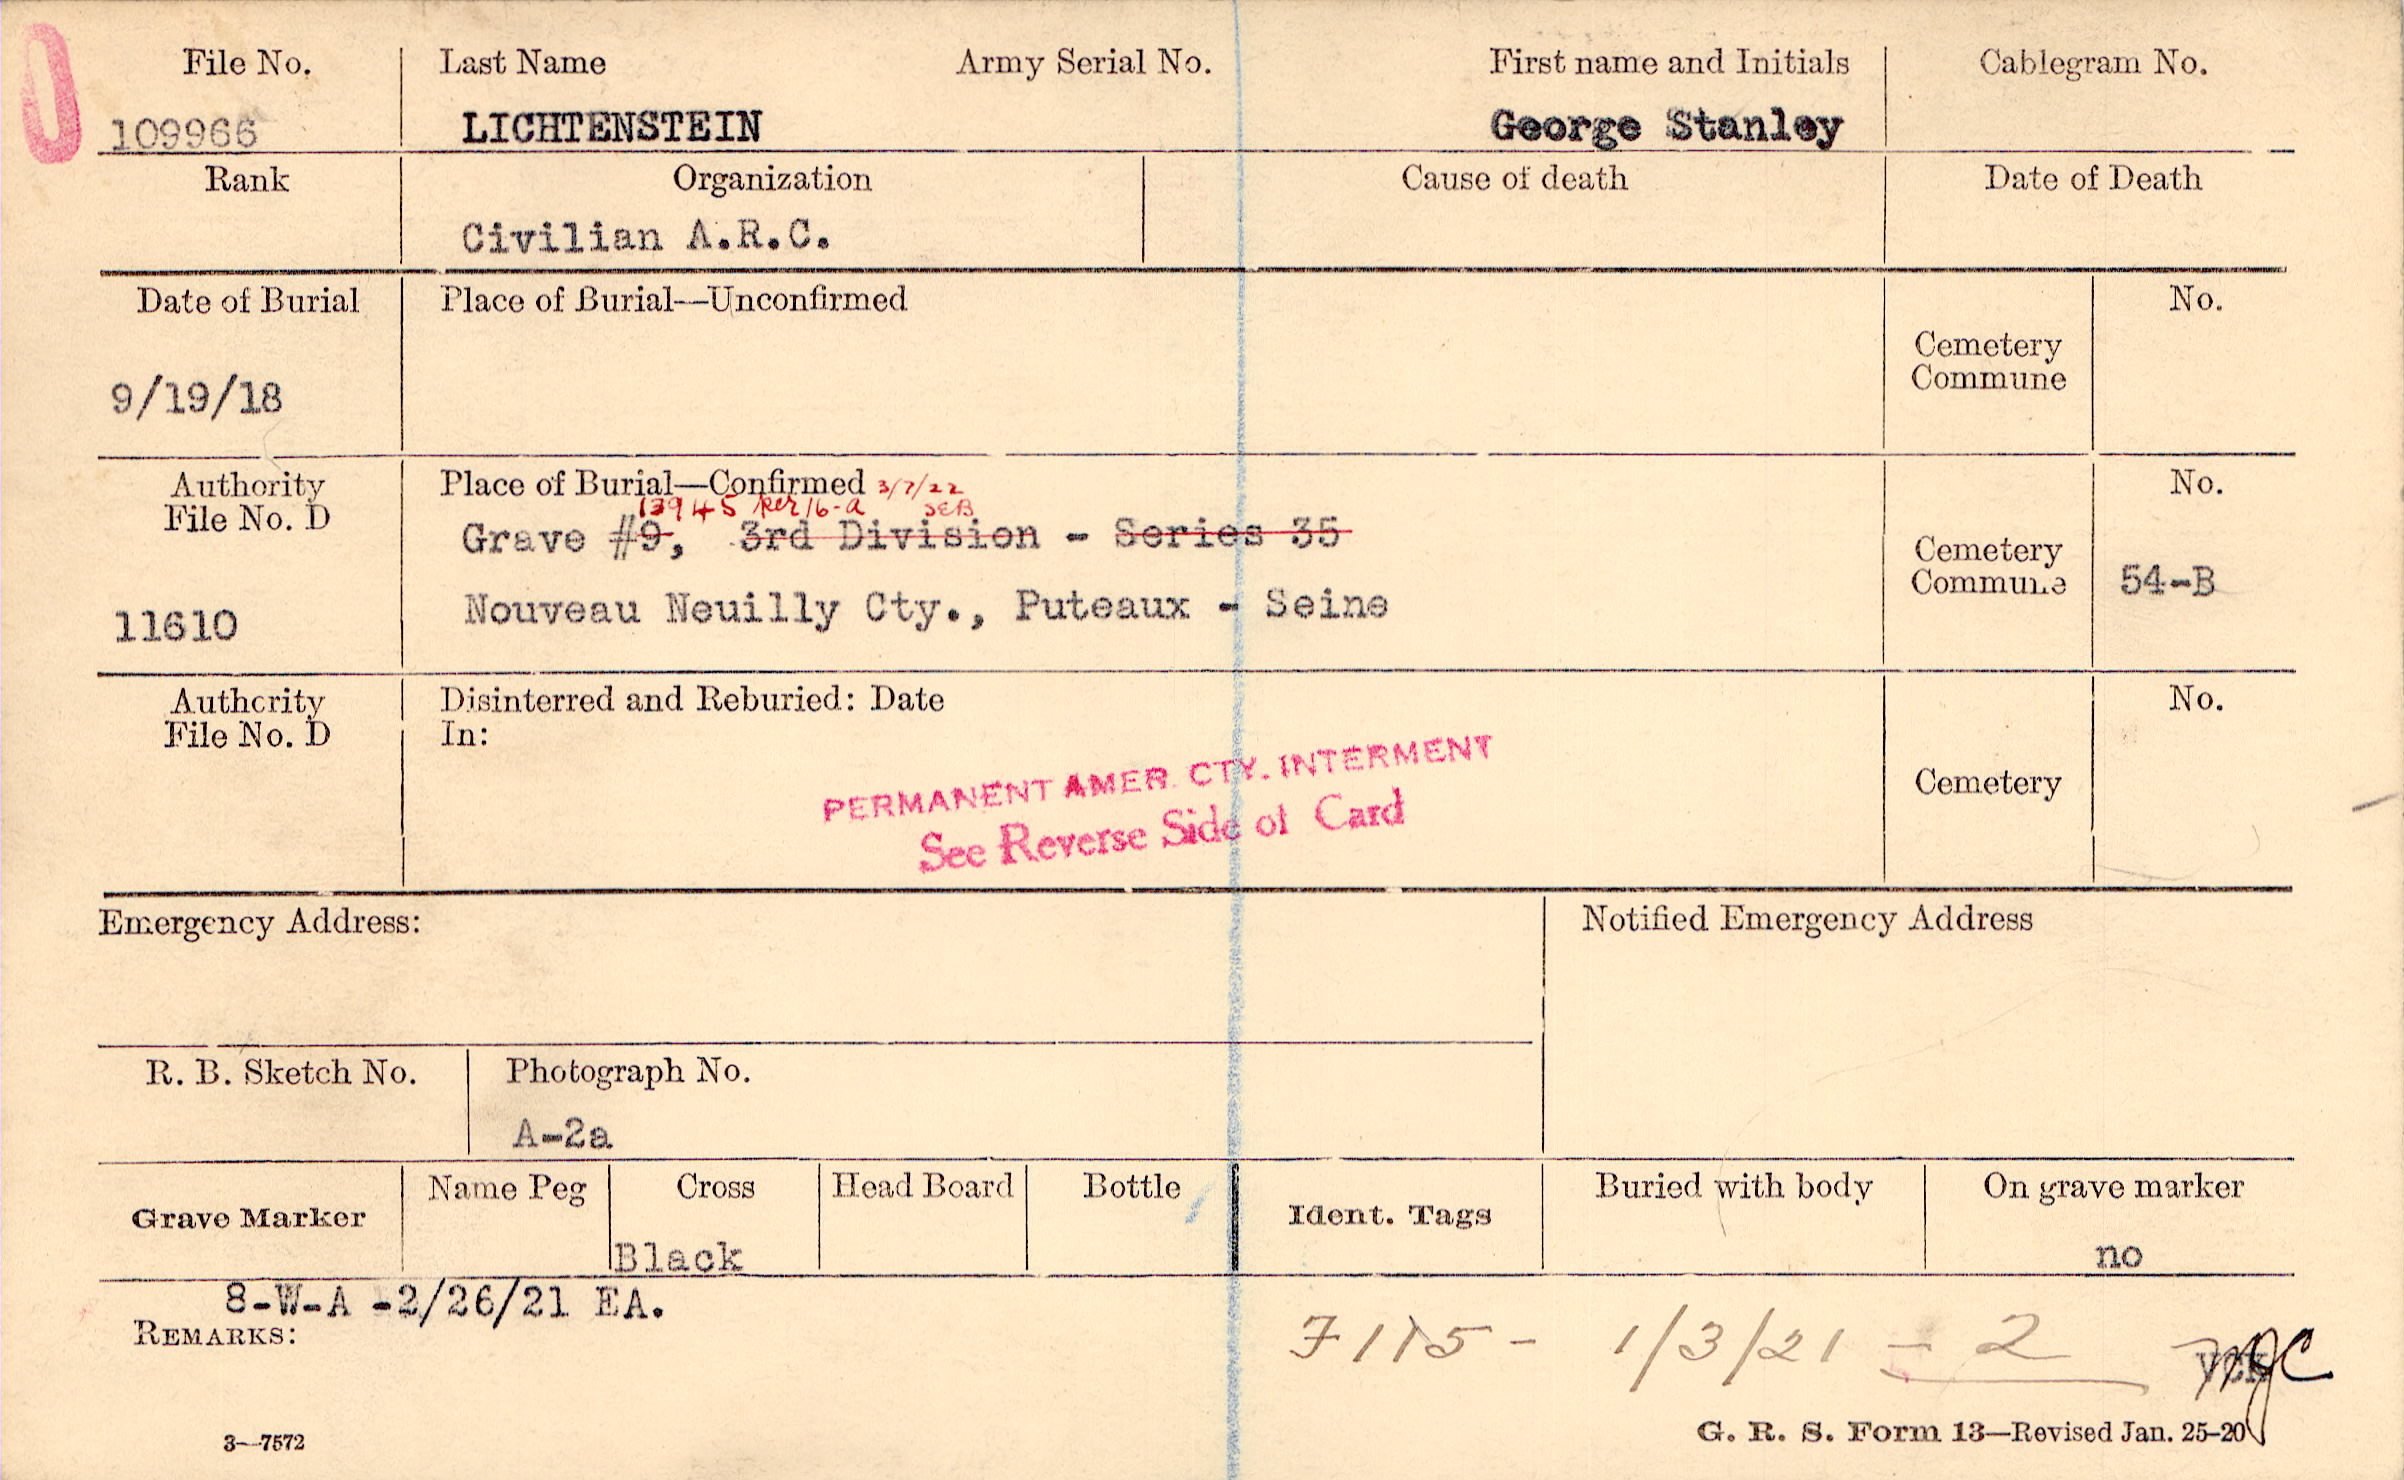 File No. Last Name Army Serial No. First name and Initials Cablegram No.
109966 LICHTENSTEIN George Stanley
Rank Organization Cause of death Date of Death
Civilian A.R.C.
Date of Burial Place of Burial—Unconfirmed No.
Cemetery
Commune
9/19/18
Authority Place of Burial—Confirmed 3/7/22 No.
File No. D
13945 per 16-a SEB
Grave #9, 3rd Division - Series 35
Cemetery
Commune 54-B
11610 Nouveau Neuilly Cty., Puteaux - Seine
Authority Disinterred and Reburied: Date No.
File No. D In:
PERMANENT AMER. CTY. INTERMENT
Cemetery
See Reverse Side of Card
Emergency Address: Notified Emergency Address
R. B. Sketch No. Photograph No.
A-2a
Name Peg Cross Head Board Bottle Buried with body On grave marker
Grave Marker Ident. Tags
Black no
8-W-A -2/26/21 EA.
REMARKS:
1/3/21 - 2
3—7572 G. R. S. Form 13—Revised Jan. 25-20